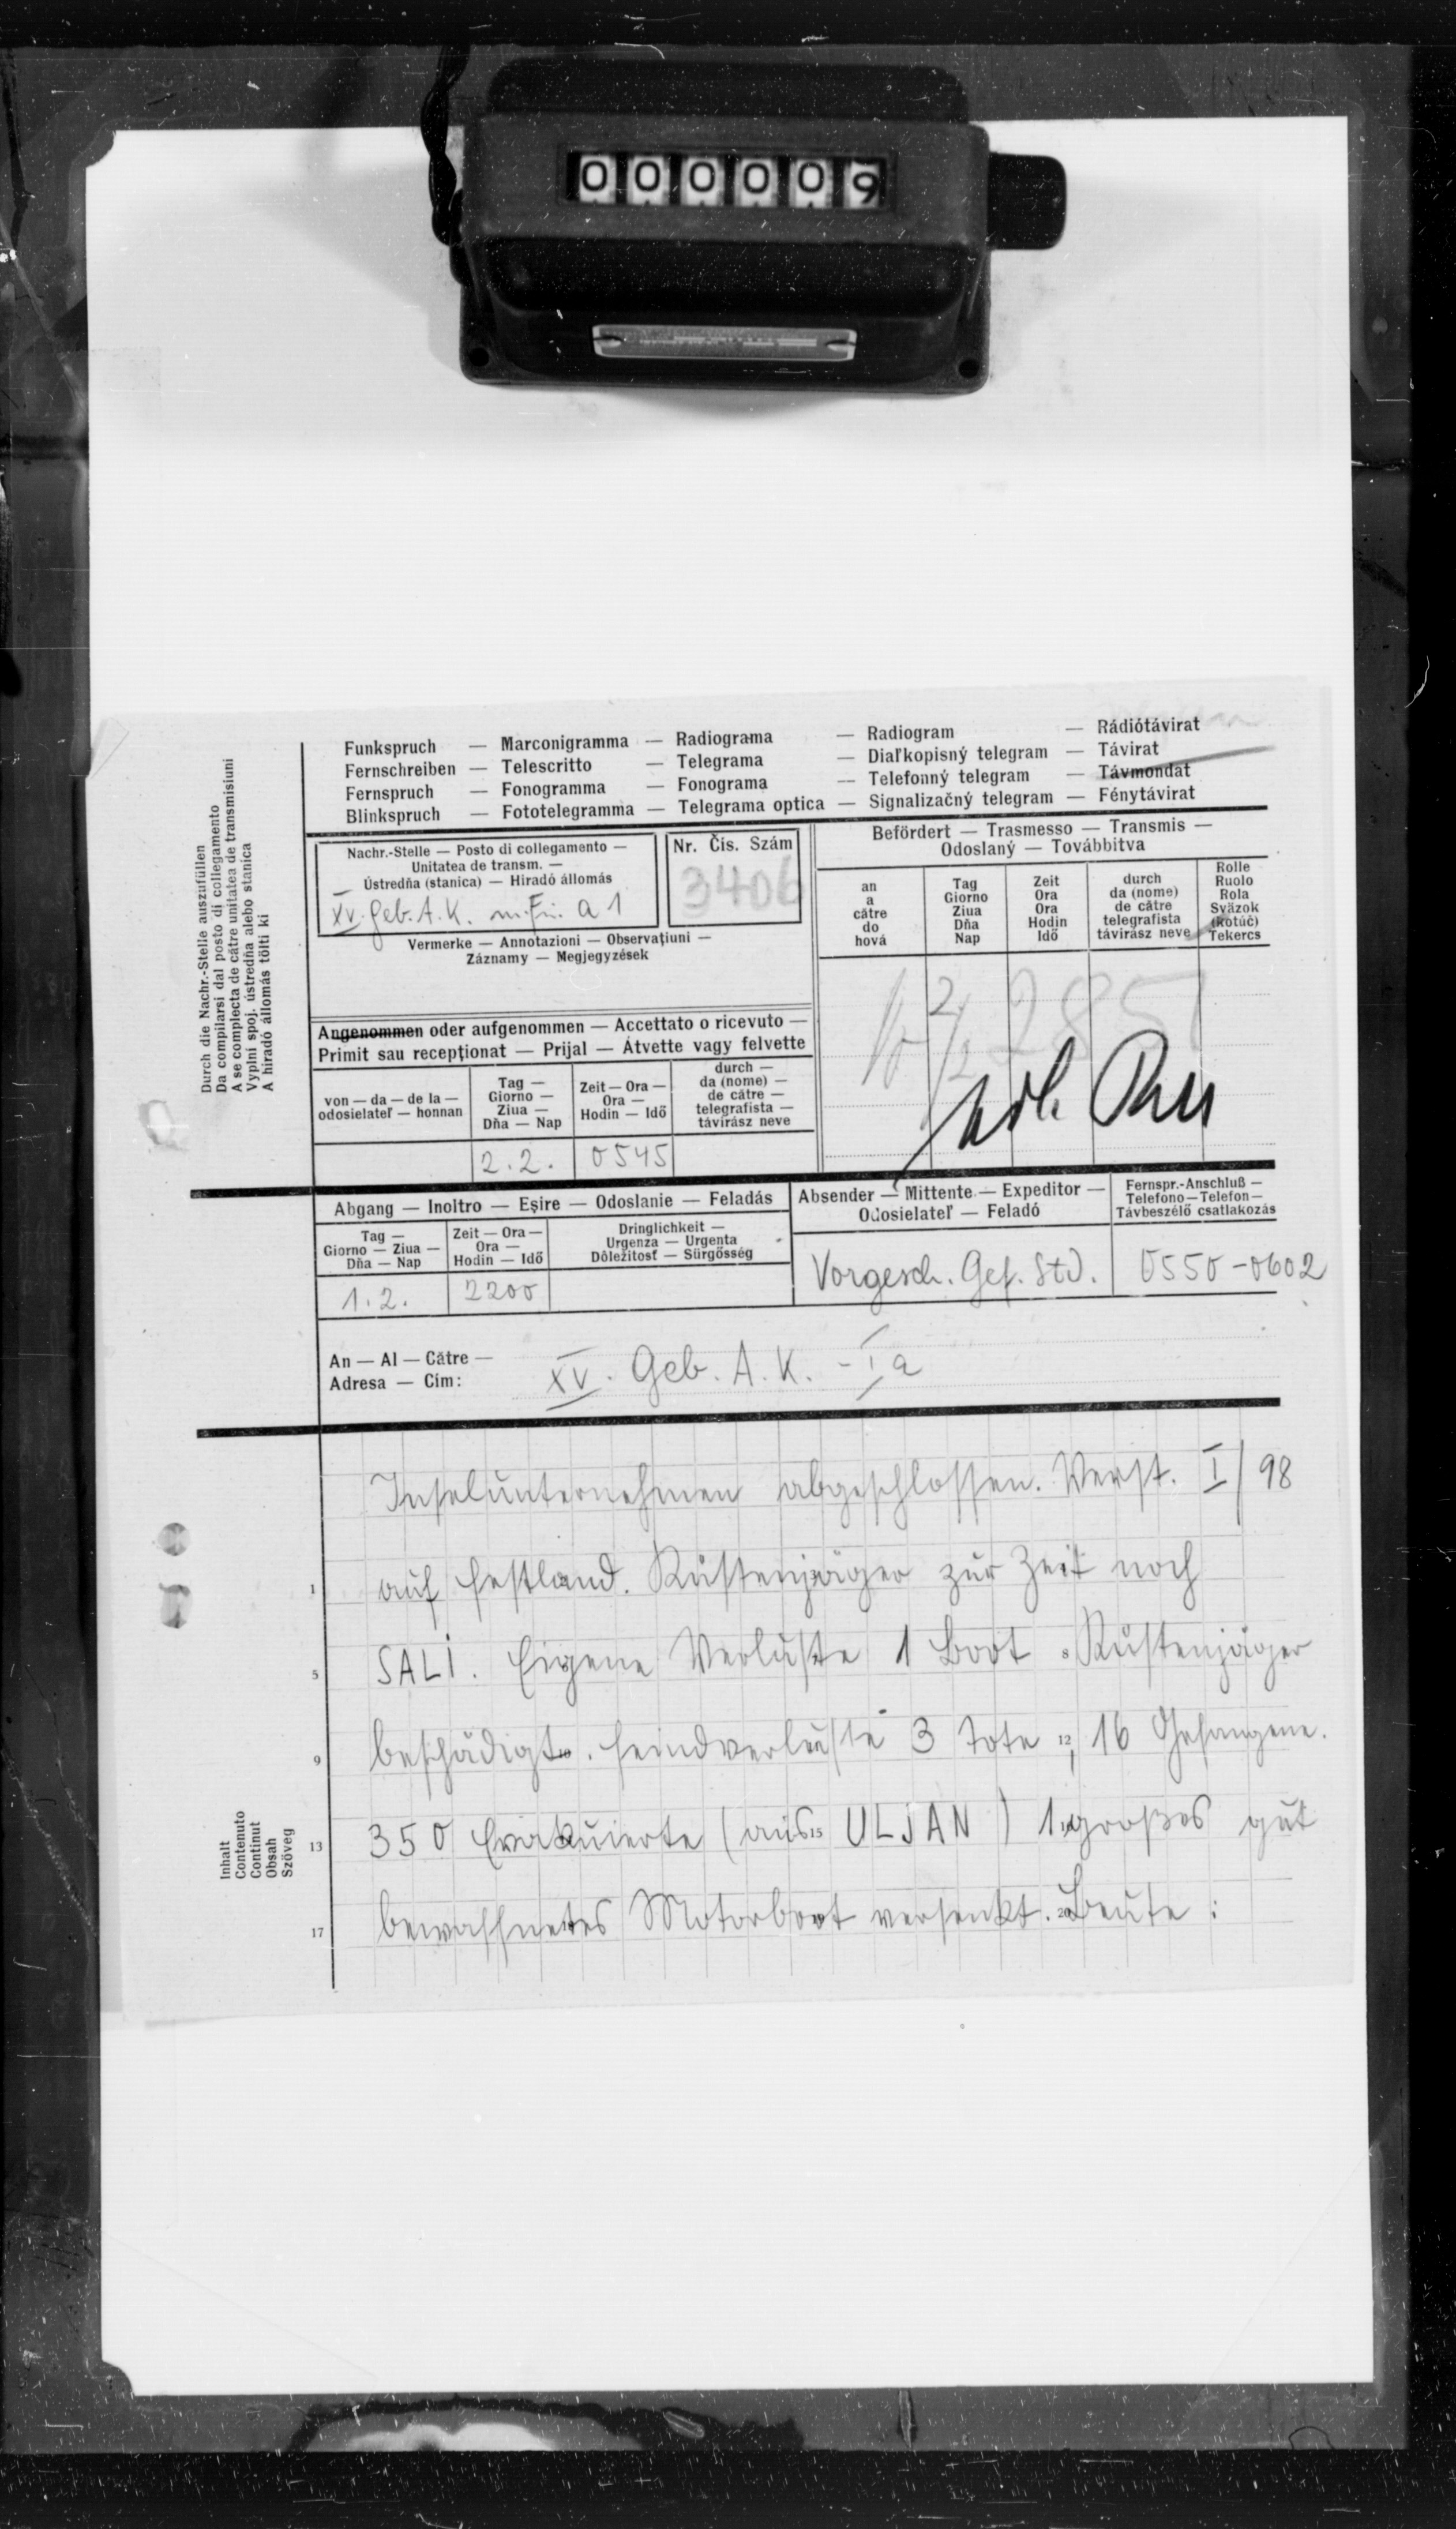 000009
Funkspruch — Marconigramma — Radiograma — Radiogram — Rádiótávirat
Fernschreiben — Telescritto — Telegrama — Diaľkopisný telegram — Távirat
Fernspruch — Fonogramma — Fonograma — Telefonný telegram — Távmondat
Blinkspruch — Fototelegramma — Telegrama optica — Signalizačný telegram — Fénytávirat
Durch die Nachr.-Stelle auszufüllen
Da compilarsi dal posto di collegamento
A se complecta de către unitatea de transmisiuni
Vyplni spoj. ústredňa alebo stanica
A híradó állomás tölti ki
Nachr.-Stelle — Posto di collegamento —
Unitatea de transm. —
Ústredňa (stanica) — Hiradó állomás
XV. Geb. A. K. m. Fu. a 1
Nr. Čis. Szám
3406
Vermerke — Annotazioni — Observațiuni —
Záznamy — Megjegyzések
Befördert — Trasmesso — Transmis —
Odoslaný — Továbbitva
an
a
către
do
hová
Tag
Giorno
Ziua
Dňa
Nap
Zeit
Ora
Ora
Hodin
Idő
durch
da (nome)
de către
telegrafista
távirász neve
Rolle
Ruolo
Rola
Sväzok
(kotúč)
Tekercs
Angenommen oder aufgenommen — Accettato o ricevuto —
Primit sau recepționat — Prijal — Átvette vagy felvette
von — da — de la —
odosielateľ — honnan
Tag —
Giorno —
Ziua —
Dňa — Nap
Zeit — Ora —
Ora —
Hodin — Idő
durch —
da (nome) —
de către —
telegrafista —
távirász neve
2.2. 0545
2/2 285
Abgang — Inoltro — Eşire — Odoslanie — Feladás
Tag —
Giorno — Ziua —
Dňa — Nap
Zeit — Ora —
Ora —
Hodin — Idő
Dringlichkeit —
Urgenza — Urgenta
Dôležitosť — Sürgősség
1.2. 2200
Absender — Mittente — Expeditor —
Odosielateľ — Feladó
Vorgesch. Gef. Std.
Fernspr.-Anschluß —
Telefono — Telefon —
Távbeszélő csatlakozás
0550-0602
An — Al — Către —
Adresa — Cím:
XV. Geb. A. K. - Ia
Inselunternehmen abgeschlossen. Verst. I/98
1 auf Festland. Küstenjäger zur Zeit noch
5 SALI. Eigene Verluste 1 Boot 8 Küstenjäger
9 beschädigt. Feindverluste 3 Tote 12, 16 Gefangene.
Inhalt
Contenuto
Continut
Obsah
Szöveg
13 350 Evakuierte (aus 15 ULJAN) 1 großes gut
17 bewaffnetes Motorboot versenkt. 20 Beute: